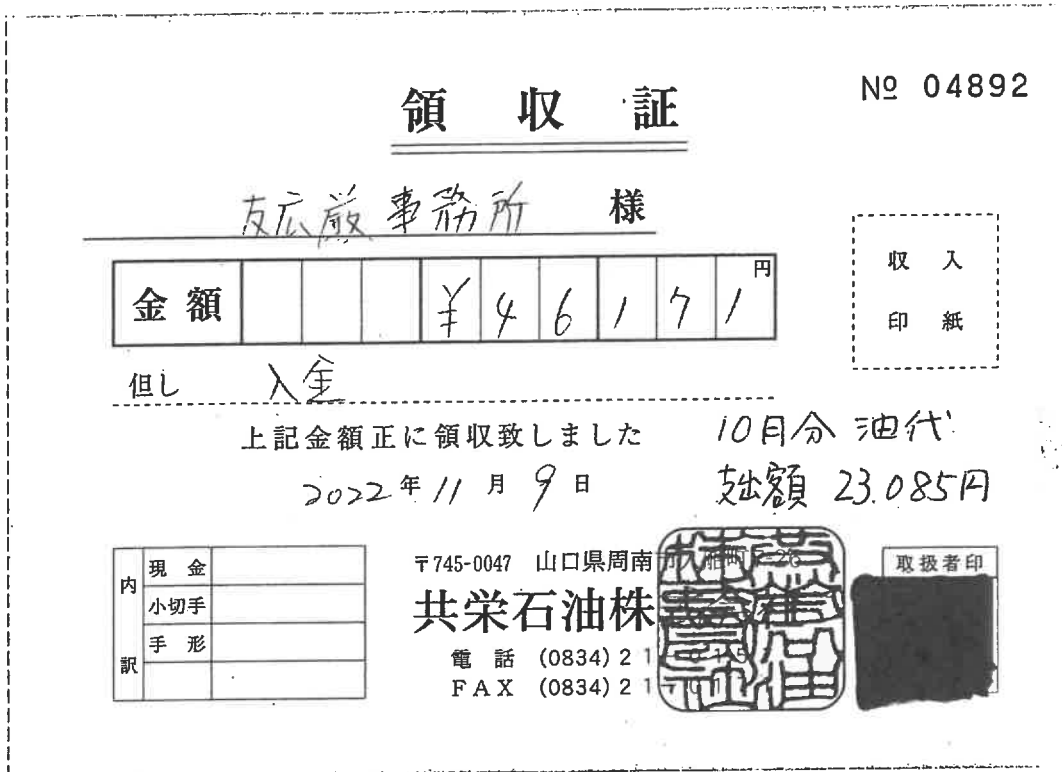 領収証
№ 04892
友広巌事務所 様
金額 ¥46171円
収入
印紙
但し 入金
上記金額正に領収致しました
10月分 油代
2022年11月9日
支出額 23.085円
内訳
現金
小切手
手形
〒745-0047 山口県周南
共栄石油株
電話 (0834)21
FAX (0834)21
取扱者印